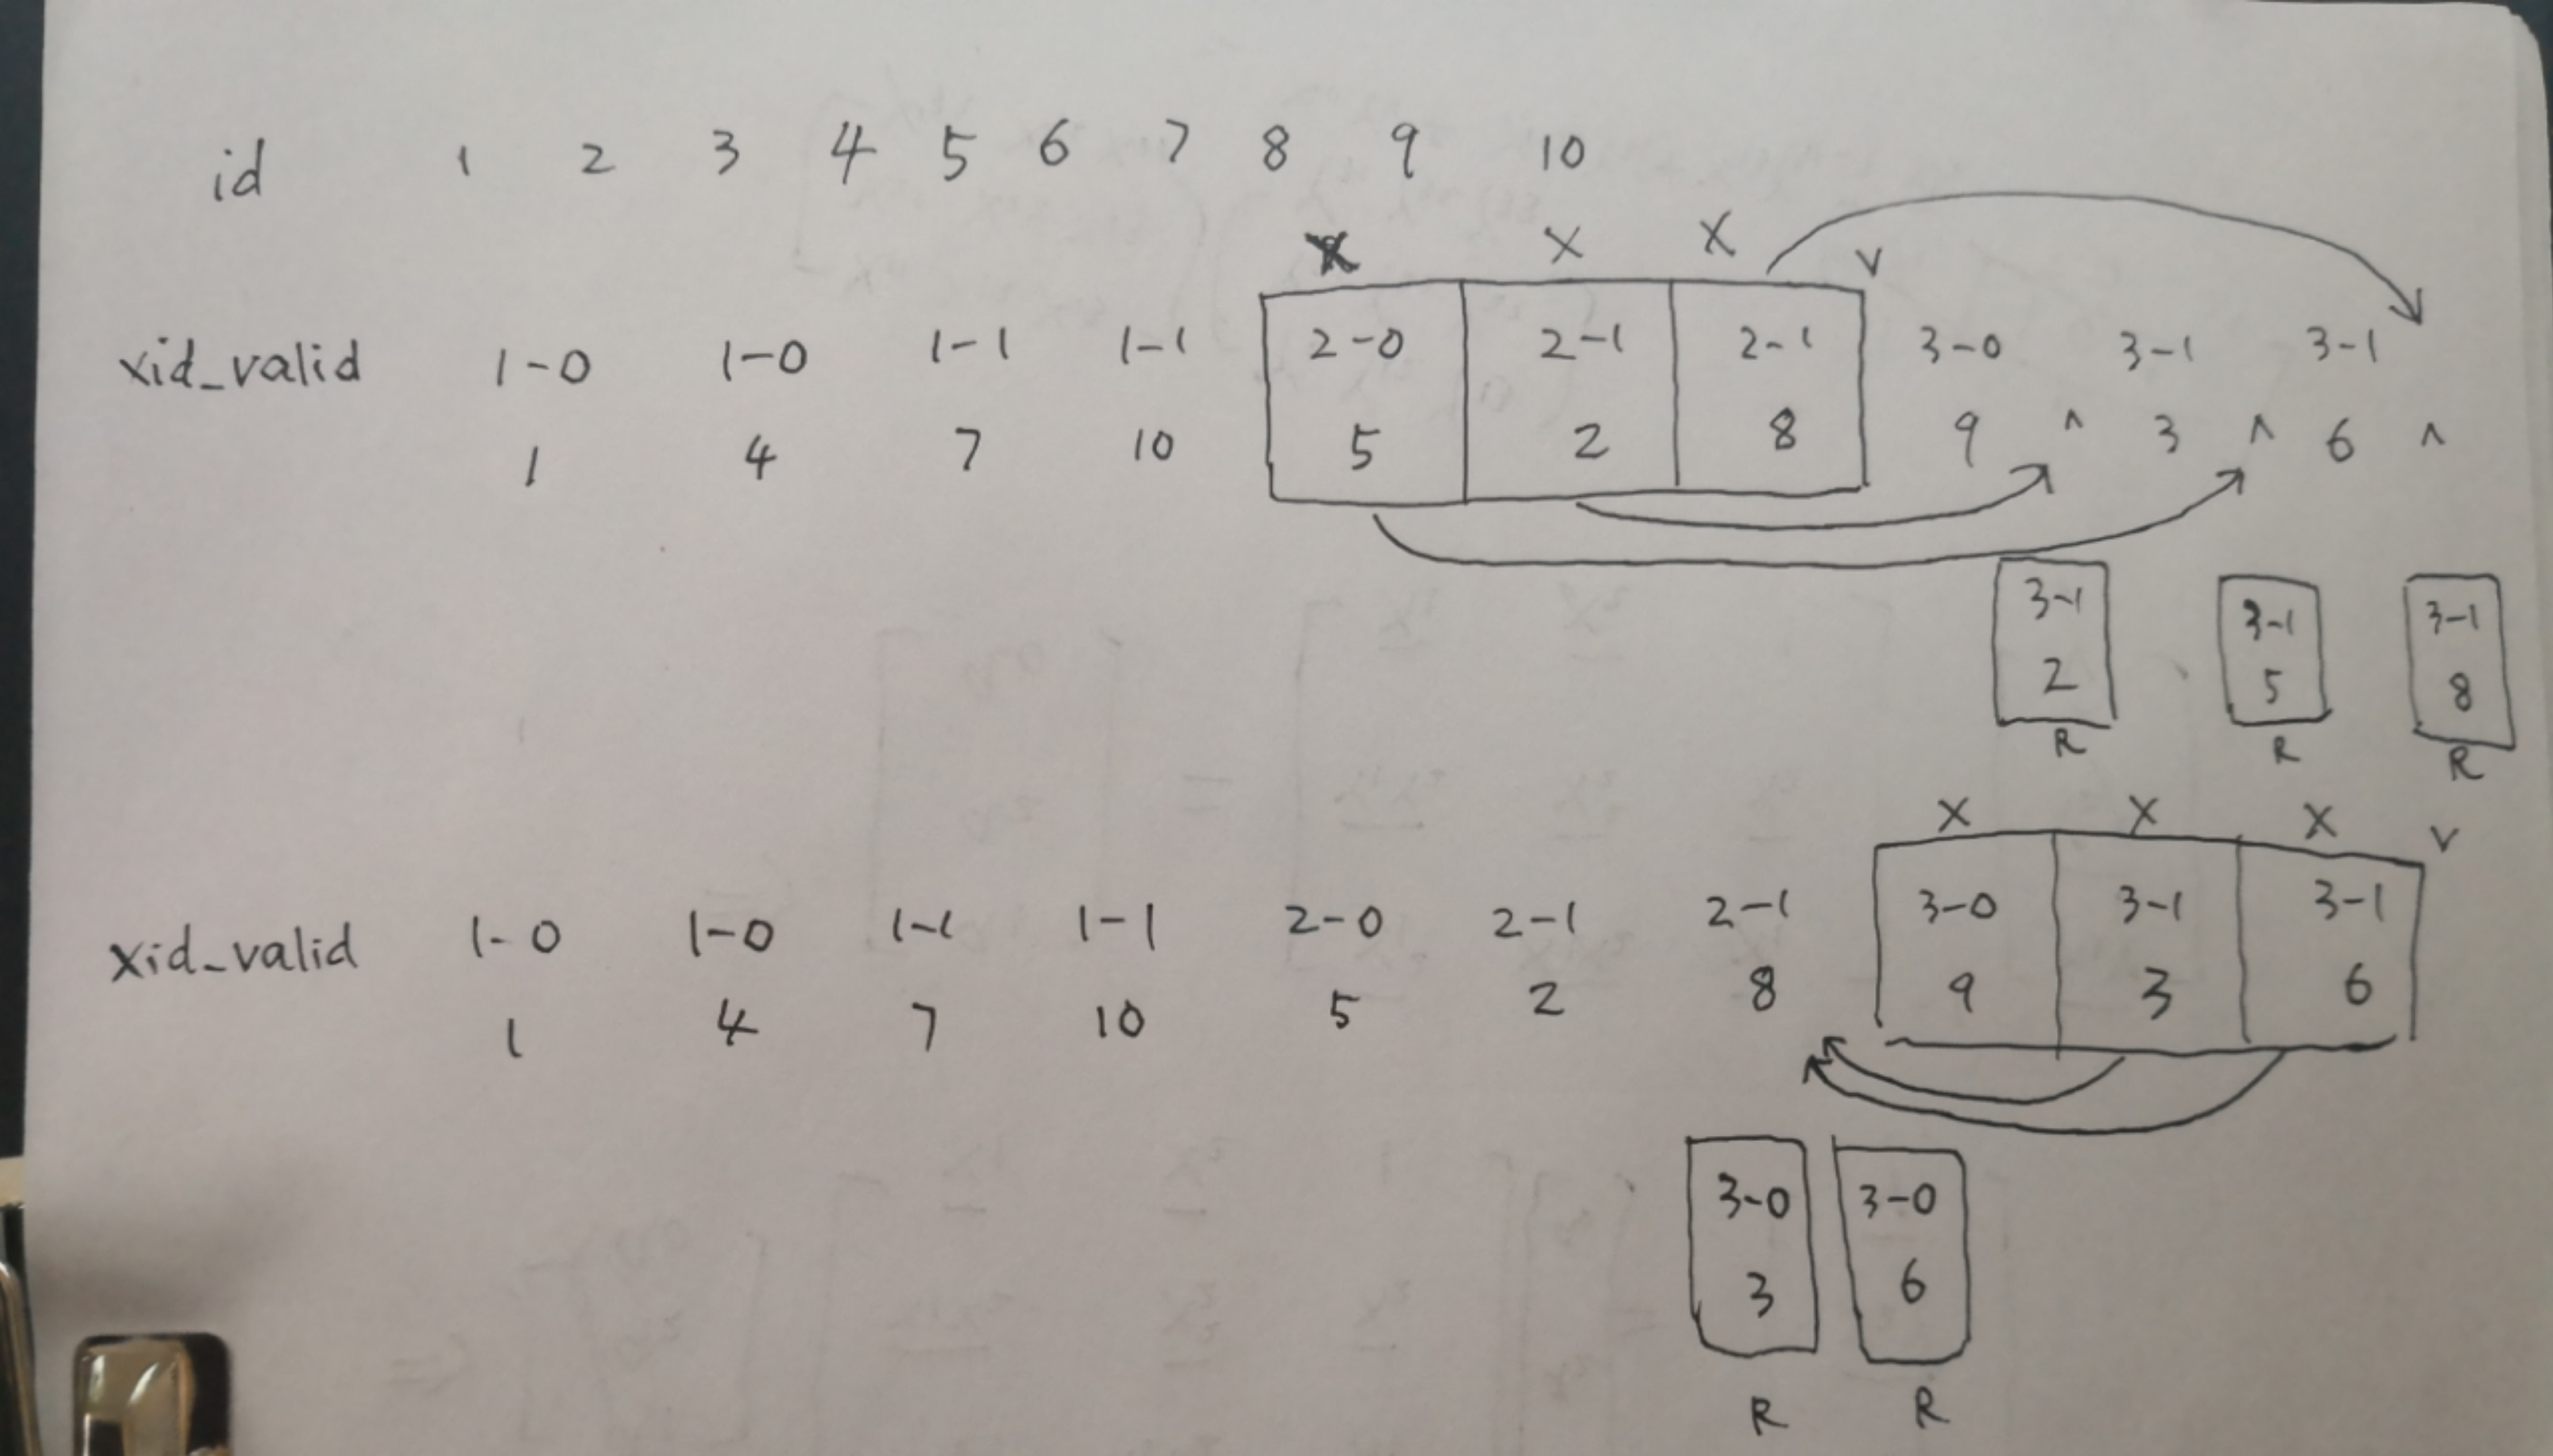 id 1 2 3 4 5 6 7 8 9 10
X X X v
xid_valid 1-0 1-0 1-1 1-1 2-0 2-1 2-1 3-0 3-1 3-1
1 4 7 10 5 2 8 9 ^ 3 ^ 6 ^
3-1 3-1 3-1
2 5 8
R R R
X X X v
xid_valid 1-0 1-0 1-1 1-1 2-0 2-1 2-1 3-0 3-1 3-1
1 4 7 10 5 2 8 9 3 6
3-0 3-0
3 6
R R